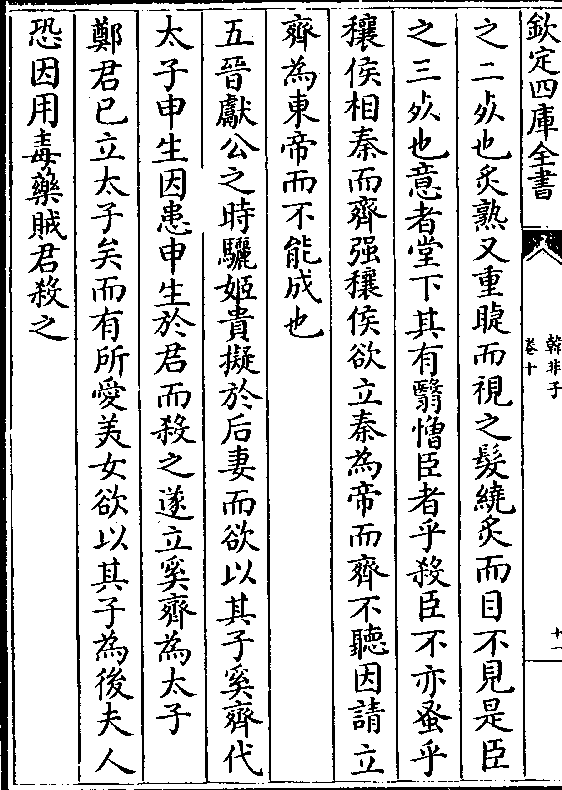 欽定四庫全書
韓非子
卷十
十一
之二㸃也炙熟又重睫而視之髮繞炙而目不見是臣
之三㸃也意者堂下其有翳憎臣者乎殺臣不亦蚤乎
穰侯相秦而齊强穰侯欲立秦為帝而齊不聽因請立
齊為東帝而不能成也
五晉獻公之時驪姬貴擬於后妻而欲以其子奚齊代
太子申生因患申生於君而殺之遂立奚齊為太子
鄭君已立太子矣而有所愛美女欲以其子為後夫人
恐因用毒藥賊君殺之